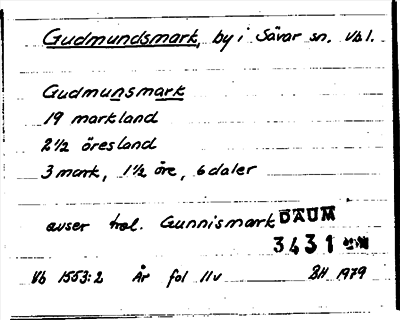 Gudmundsmark, by i Sävar sn. Vbl.
Gudmunsmark
19 markland
2½ öresland
3 mark, 1½ öre, 6 daler
avser trol. Gunnismark DAUM
3431
Vb 1553:2 År fol 11v BH 1979